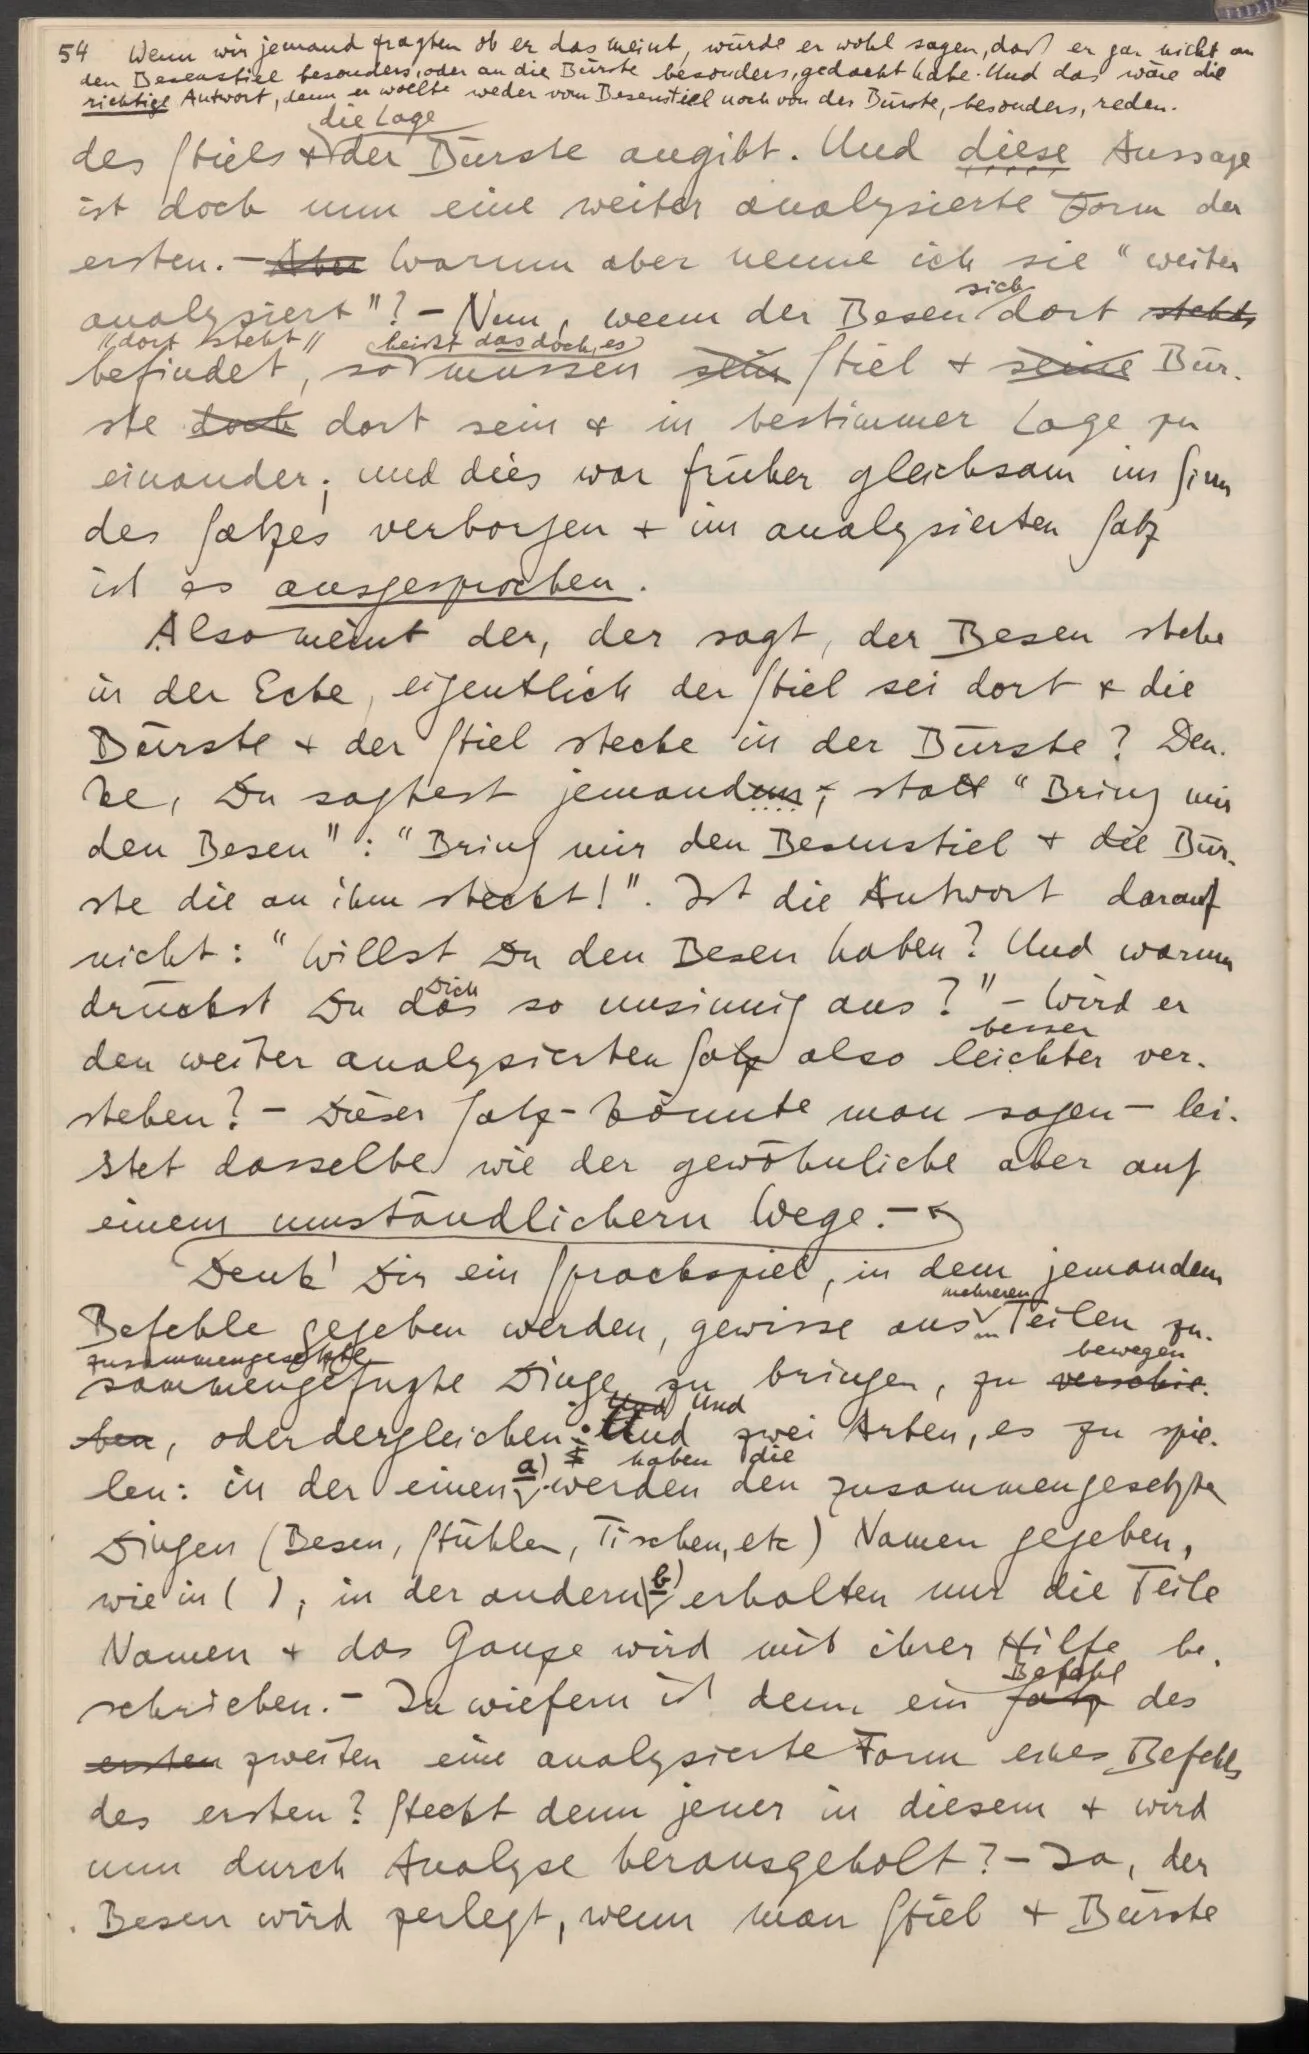 54 Wenn wir jemand fragten ob er das meint, würde er wohl sagen, daß er gar nicht an
den Besenstiel besonders, oder an die Bürste besonders, gedacht habe. Und das wäre die
richtige Antwort, denn er wollte weder vom Besenstiel noch von der Bürste, besonders, reden.
die Lage
des Stiels & der Bürste angibt. Und diese Aussage
ist doch nun eine weiter analysierte Form der
ersten. – Aber Warum aber nenne ich sie "weiter
sich
analysiert"? – Nun, wenn der Besen dort steht,
"dort steht" heißt das doch, es
befindet, so müssen sein Stiel & seine Bür-
ste doch dort sein & in bestimmer Lage zu
einander; und dies war früher gleichsam im Sinn
des Satzes verborgen & im analysierten Satz
ist es ausgesprochen.
Also meint der, der sagt, der Besen stehe
in der Ecke, eigentlich der Stiel sei dort & die
Bürste & der Stiel stecke in der Bürste? Den-
ke, Du sagtest jemandem, statt "Bring mir
den Besen": "Bring mir den Besenstiel & die Bür-
ste die an ihm steckt!". Ist die Antwort darauf
nicht: "Willst Du den Besen haben? Und warum
Dich
drückst Du das so unsinnig aus?" – Wird er
besser
den weiter analysierten Satz also leichter ver-
stehen? – Dieser Satz – könnte man sagen – lei-
stet dasselbe wie der gewöhnliche aber auf
einem umständlichern Wege. –
Denk' Dir ein Sprachspiel, in dem jemandem
mehreren
Befehle gegeben werden, gewisse aus Teilen zu-
zusammengesetzte bewegen
sammengefügte Dinge zu bringen, zu verschie-
Und Und
ben, oder dergleichen. Und zwei Arten, es zu spie-
a) haben die
len: in der einen werden den zusammengesetzte
Dingen (Besen, Stühlen, Tischen, etc) Namen gegeben,
b)
wie in ( ), in der andern erhalten nur die Teile
Namen & das Ganze wird mit ihrer Hilfe be-
Befehl
schrieben. – In wiefern ist denn ein Satz des
ersten zweiten eine analysierte Form eines Befehls
des ersten? Steckt denn jener in diesem & wird
nun durch Analyse herausgeholt? – Ja, der
Besen wird zerlegt, wenn man Stiel & Bürste